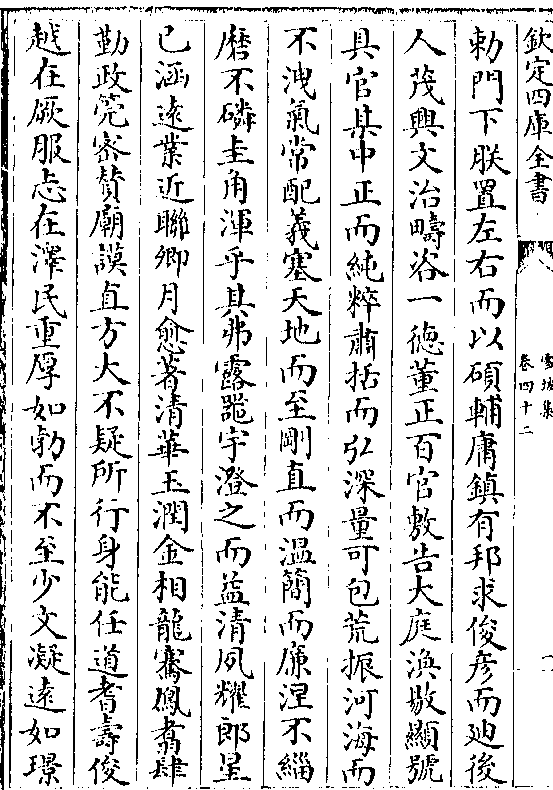 欽定四庫全書
雪坡集
卷四十二
一
勅門下朕置左右而以碩輔庸鎮有邦求俊彥而廸後
人茂興文治疇咨一德董正百官敷告大庭渙敭顯號
具官某中正而純粹肅括而弘深量可包荒振河海而
不洩氣常配義塞天地而至剛直而溫簡而廉涅不緇
磨不磷圭角渾乎其弗露噐宇澄之而益清夙耀郎星
已涵遠業近聯卿月愈著清華玉潤金相龍騫鳳翥肆
勤政筦宻贊廟謨直方大不疑所行身能任道耆壽俊
越在厥服志在澤民重厚如勃而不至少文凝遠如璟